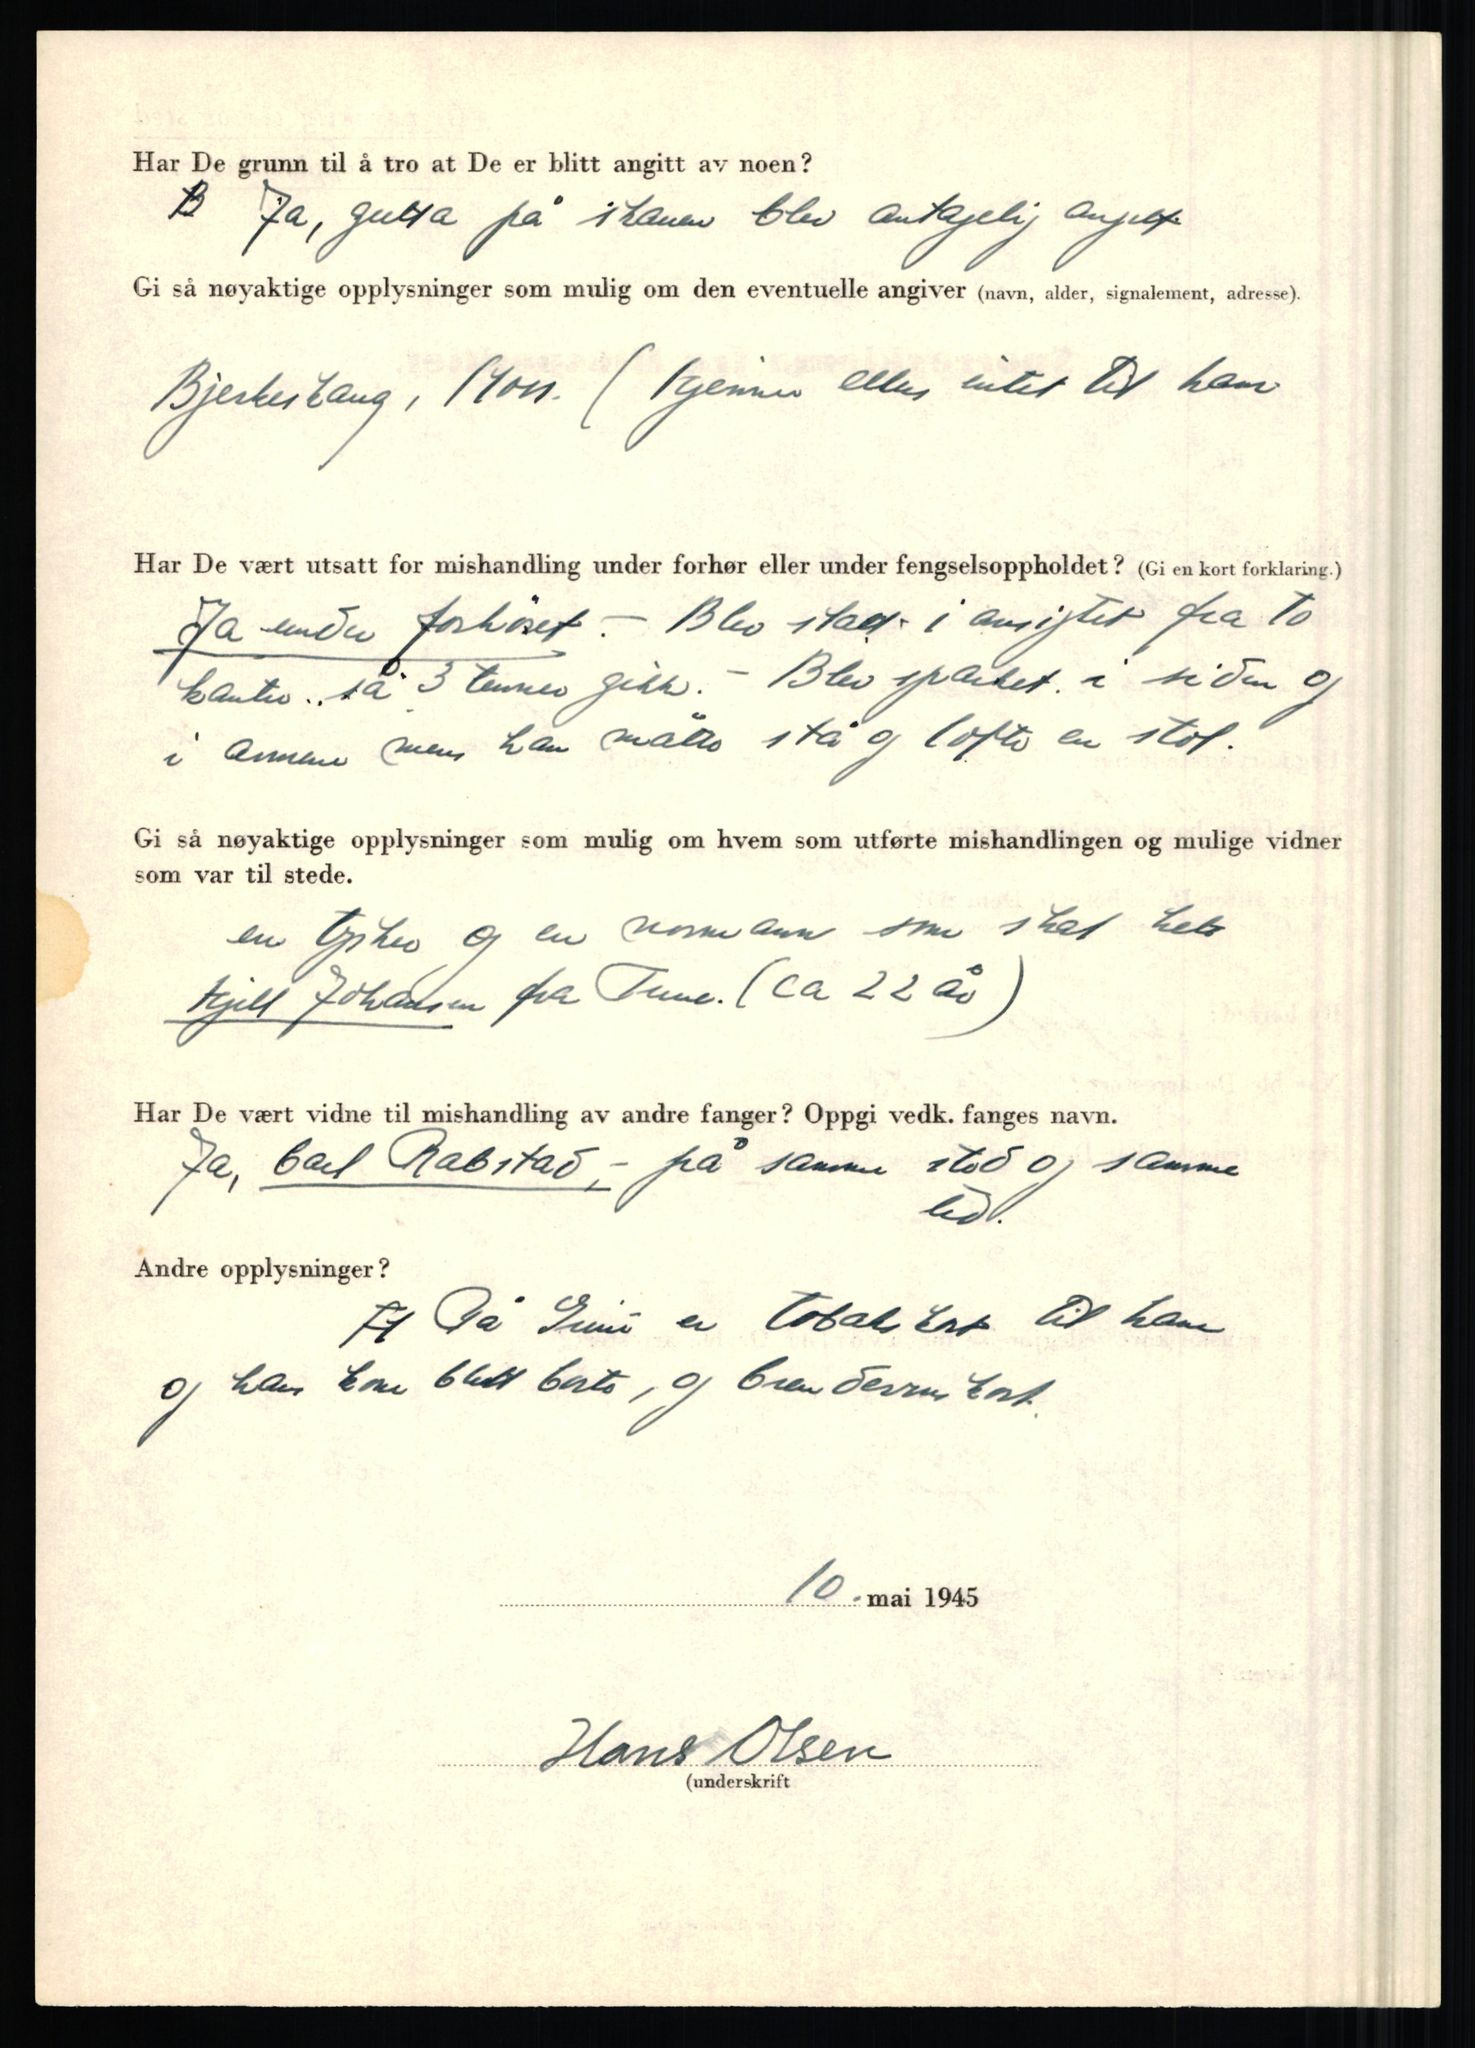 Har De grunn til å tro at De er blitt angitt av noen?
Ja, gutta på skauen blev antagelig angitt
Gi så nøyaktige opplysninger som mulig om den eventuelle angiver (navn, alder, signalement, adresse).
Bjerkeshaug, Moss. (kjenner ellers intet til ham
Har De vært utsatt for mishandling under forhør eller under fengselsoppholdet? (Gi en kort forklaring.)
Ja under forhöret. - Blev slått i ansigtet fra to
kanter.. så 3 tenner gikk. - Blev sparket i siden og
i armene mens han måtte stå og löfte en stol.
Gi så nøyaktige opplysninger som mulig om hvem som utførte mishandlingen og mulige vidner
som var til stede.
en tysker og en normann som skal hete
Kjell Johansen fra Tune. (ca 22 år)
Har De vært vidne til mishandling av andre fanger? Oppgi vedk. fanges navn.
Ja, Carl Rabstad, - på samme sted og samme
tid.
Andre opplysninger?
På Grini er tobakskort til ham
og hans kone blitt borte, og brendevinskort.
10. mai 1945
Hans Olsen
(underskrift